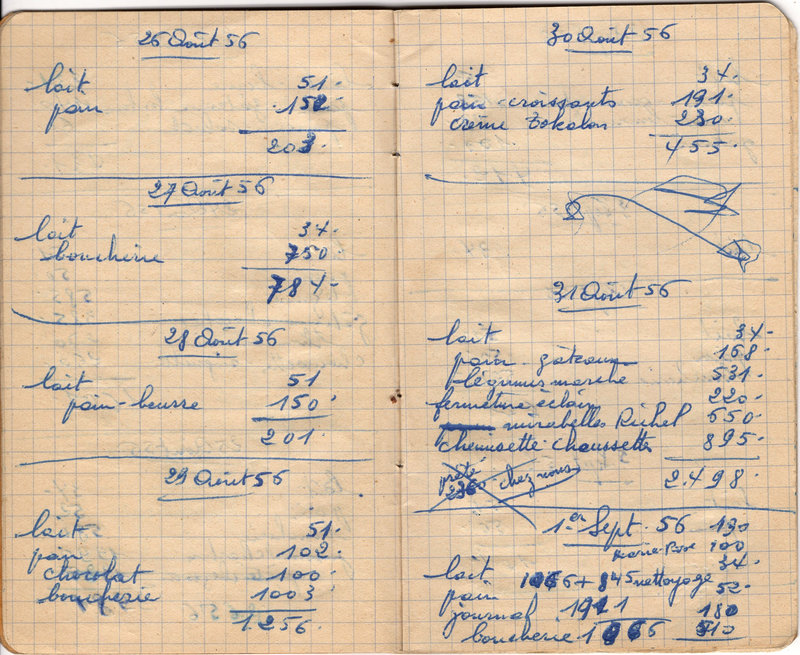 26 Août 56
lait 51.
pain .152
203.
27 Août 56
lait 34.
boucherie 750.
784.
28 Août 56
lait 51
pain-beurre 150
201.
29 Août 56
lait 51.
pain 102.
chocolat 100.
boucherie 1003
1.256.
30 Août 56
lait 34.
pain-croissants 191.
crème Tokalon 230.
455.
31 Août 56
lait 34.
pain-gâteaux 168.
légumes marché 531.
fermeture éclair 220.
mirabelles Richel 650.
chemisette-chaussettes 895.
prête chez nous 2.498.
1er Sept. 56 190
Marie-Rose 100
lait 34.
1066+845 nettoyage
pain 52.
journal 1911 180
boucherie 1